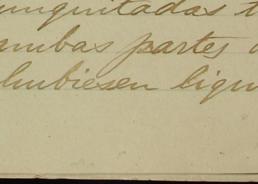 unquitadas t
ambas partes
hubiesen liqu